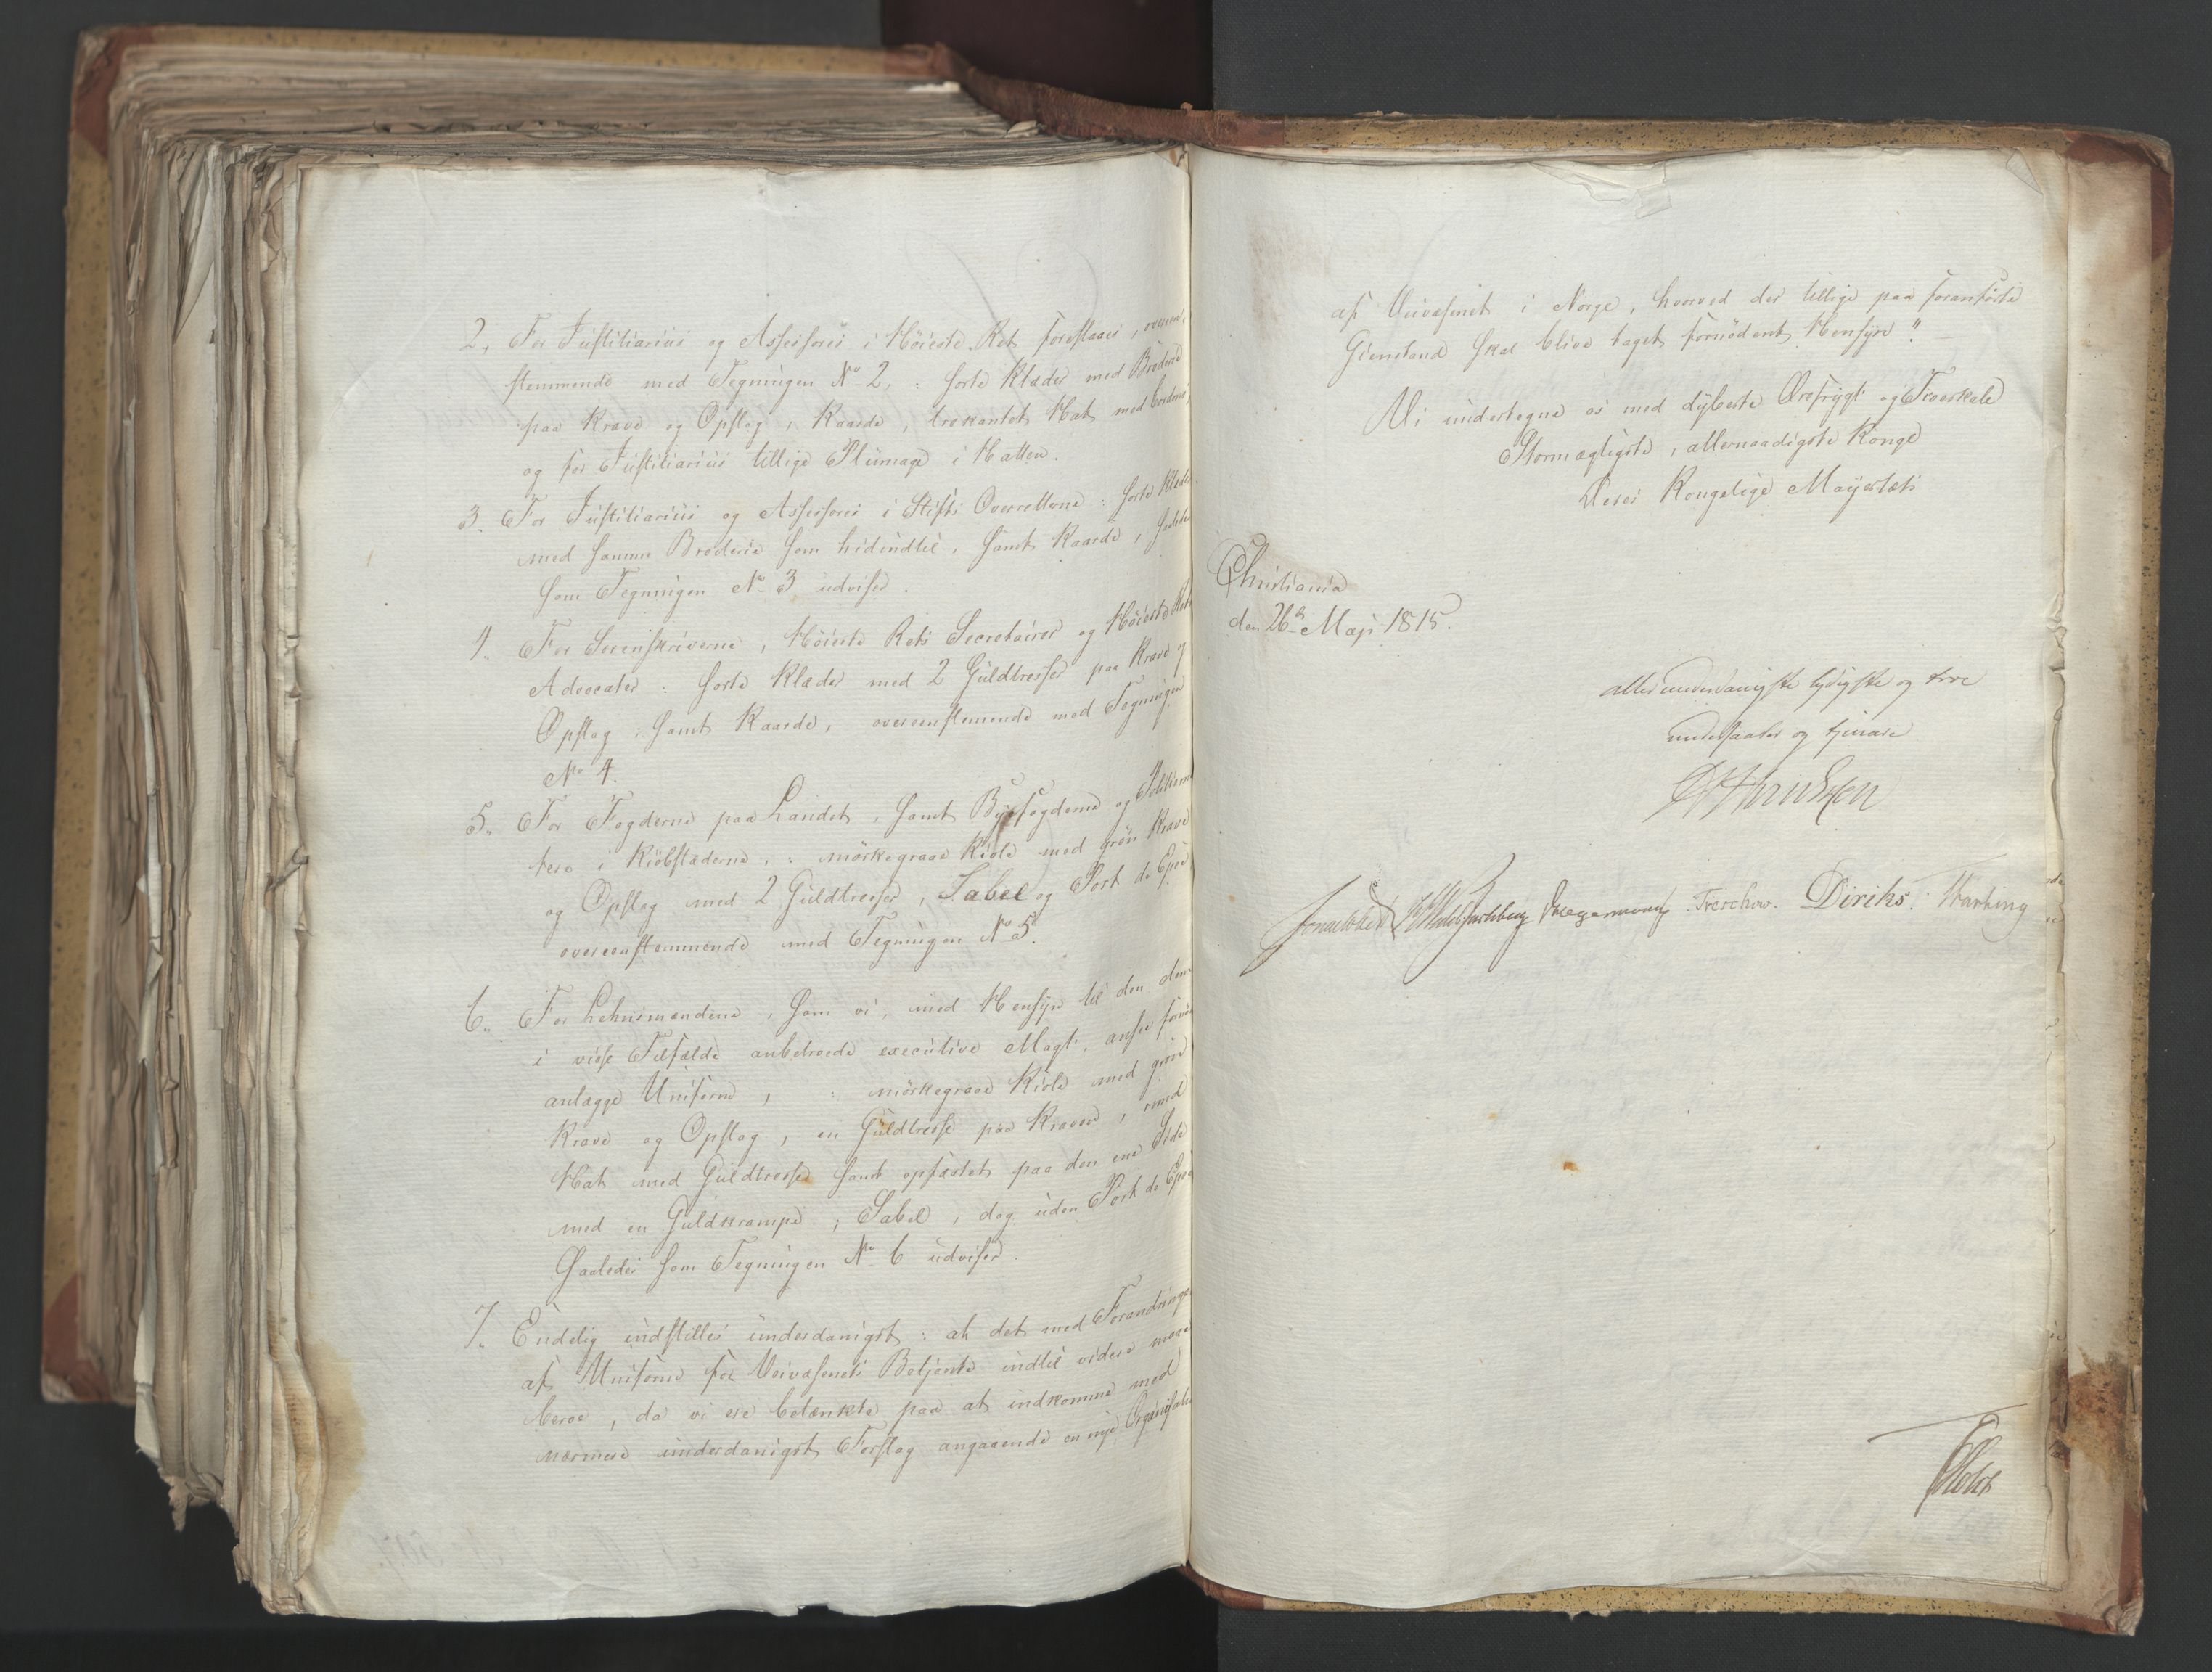 2, For Justitiarius og Assessores i Höieste Ret foreslaaes, overeens
stemmende med Tegningen No 2,: sorte Klæder med Broderie
paa Krave og Opslag, Kaarde, trekantet Hat med bordeux,
og for Justitiarius tillige Plümage i Hatten.
3. For Justitiarius og Assessores i Stifts Overretterne: sorte Klæder
med samme Broderie som hidindtil, samt Kaarde,
som Tegningen No 3 udviser.
4. For Sorenskriverne, Höieste Rets Secretairer og Höieste Rets
Advocater: sorte Klæder med 2 Guldtresser paa Krave og
Opslag: samt Kaarde, overeenstemmende med Tegningen
No 4.
5. For Fogderne paa Landet, samt Byefogderne og Politieme-
stere i Kiöbstæderne,: mörkegraae Kiole med grön Krave
og Opslag med 2 Guldtresser, Sabel og Port de Epée
overeenstemmende med Tegningen No 5.
6. For Lehnsmændene, som vi, med Hensyn til den dem
i visse Tilfælde anbetroede executive Magt, ansee
anlægge Uniform,: mörkegraae Kiole med grön
Krave og Opslag, en Guldtresse paa Kraven, rund
Hat med Guldtresse samt opfæstet paa den ene Side
med en Guldkrampe; Sabel, dog uden Port de Epée
Saaledes som Tegningen No 6 udviser.
7. Endelig indstilles underdanigst: at det med Forandringen
af Uniform for Veivæsenets Betjente indtil videre maae
beroe, da vi ere betænkte paa at indkomme med
nærmere underdanigst Forslag angaaende en nye Organisation
af Veivæsenet i Norge, hvorved der tillige paa foranförte
Gienstand skal blive taget fornödent Hensyn".
Vi undertegne os med dybeste Ærefrygt og Troeskab
Stormægtigste, allernaadigste Konge
Deres Kongelige Mayestæts
Christiania
den 26de Maji 1815.
allerunderdanigste lydigste og troe
undersaatter og tjenare
Sommerhielm Diegermann Treschow. Diriks. Harbing
Holst